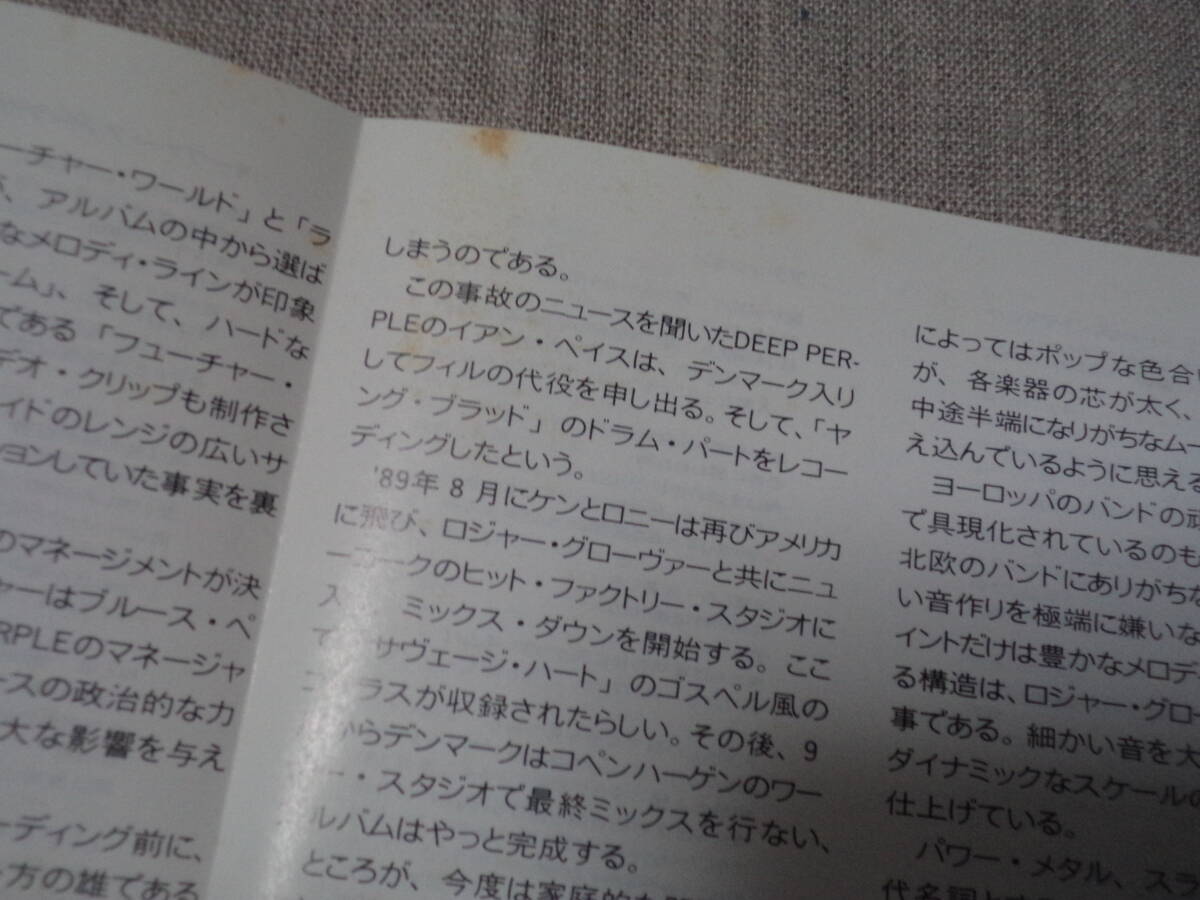 ーチャー・ワールド」と「ラ
、アルバムの中から選ば
なメロディ・ラインが印象
ーム」、そして、ハードな
である「フューチャー・
デオ・クリップも制作さ
イドのレンジの広いサ
ションしていた事実を裏
のマネージメントが決
ャーはブルース・ペ
RPLEのマネージャ
ースの政治的な力
大な影響を与え
ーディング前に、
方の雄である
しまうのである。
この事故のニュースを聞いたDEEP PER-
PLEのイアン・ペイスは、デンマーク入り
してフィルの代役を申し出る。そして、「ヤ
ング・ブラッド」のドラム・パートをレコー
ディングしたという。
'89年8月にケンとロニーは再びアメリカ
に飛び、ロジャー・グローヴァーと共にニュ
ーヨークのヒット・ファクトリー・スタジオに
入 ミックス・ダウンを開始する。ここ
で サヴェージ・ハート」のゴスペル風の
コーラスが収録されたらしい。その後、9
からデンマークはコペンハーゲンのワー
ー・スタジオで最終ミックスを行ない、
ルバムはやっと完成する。
ところが、今度は家庭的な
によってはポップな色合い
が、各楽器の芯が太く、
中途半端になりがちなムー
え込んでいるように思える
ヨーロッパのバンドの
で具現化されているのも
北欧のバンドにありがちな
い音作りを極端に嫌いな
イントだけは豊かなメロデ
る構造は、ロジャー・グロー
事である。細かい音を大
ダイナミックなスケールの
仕上げている。
パワー・メタル、スラ
代名詞と